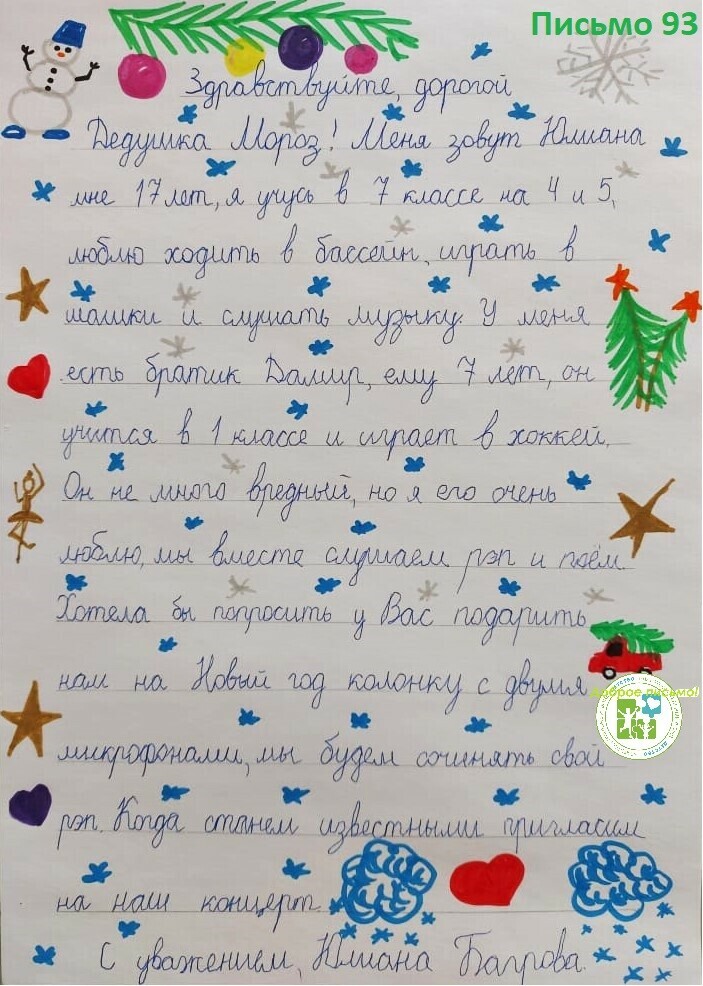 Письмо 93
Здравствуйте, дорогой
Дедушка Мороз! Меня зовут Юлиана
мне 17 лет, я учусь в 7 классе на 4 и 5,
люблю ходить в бассейн, играть в
шашки и слушать музыку. У меня
есть братик Дамир, ему 7 лет, он
учится в 1 классе и играет в хоккей.
Он не много вредный, но я его очень
люблю, мы вместе слушаем рэп и поём.
Хотела бы попросить у Вас подарить
нам на Новый год колонку с двумя
Доброе письмо!
микрофонами, мы будем сочинять свой
рэп. Когда станем известными пригласим
на наш концерт.
С уважением, Юлиана Багрова.